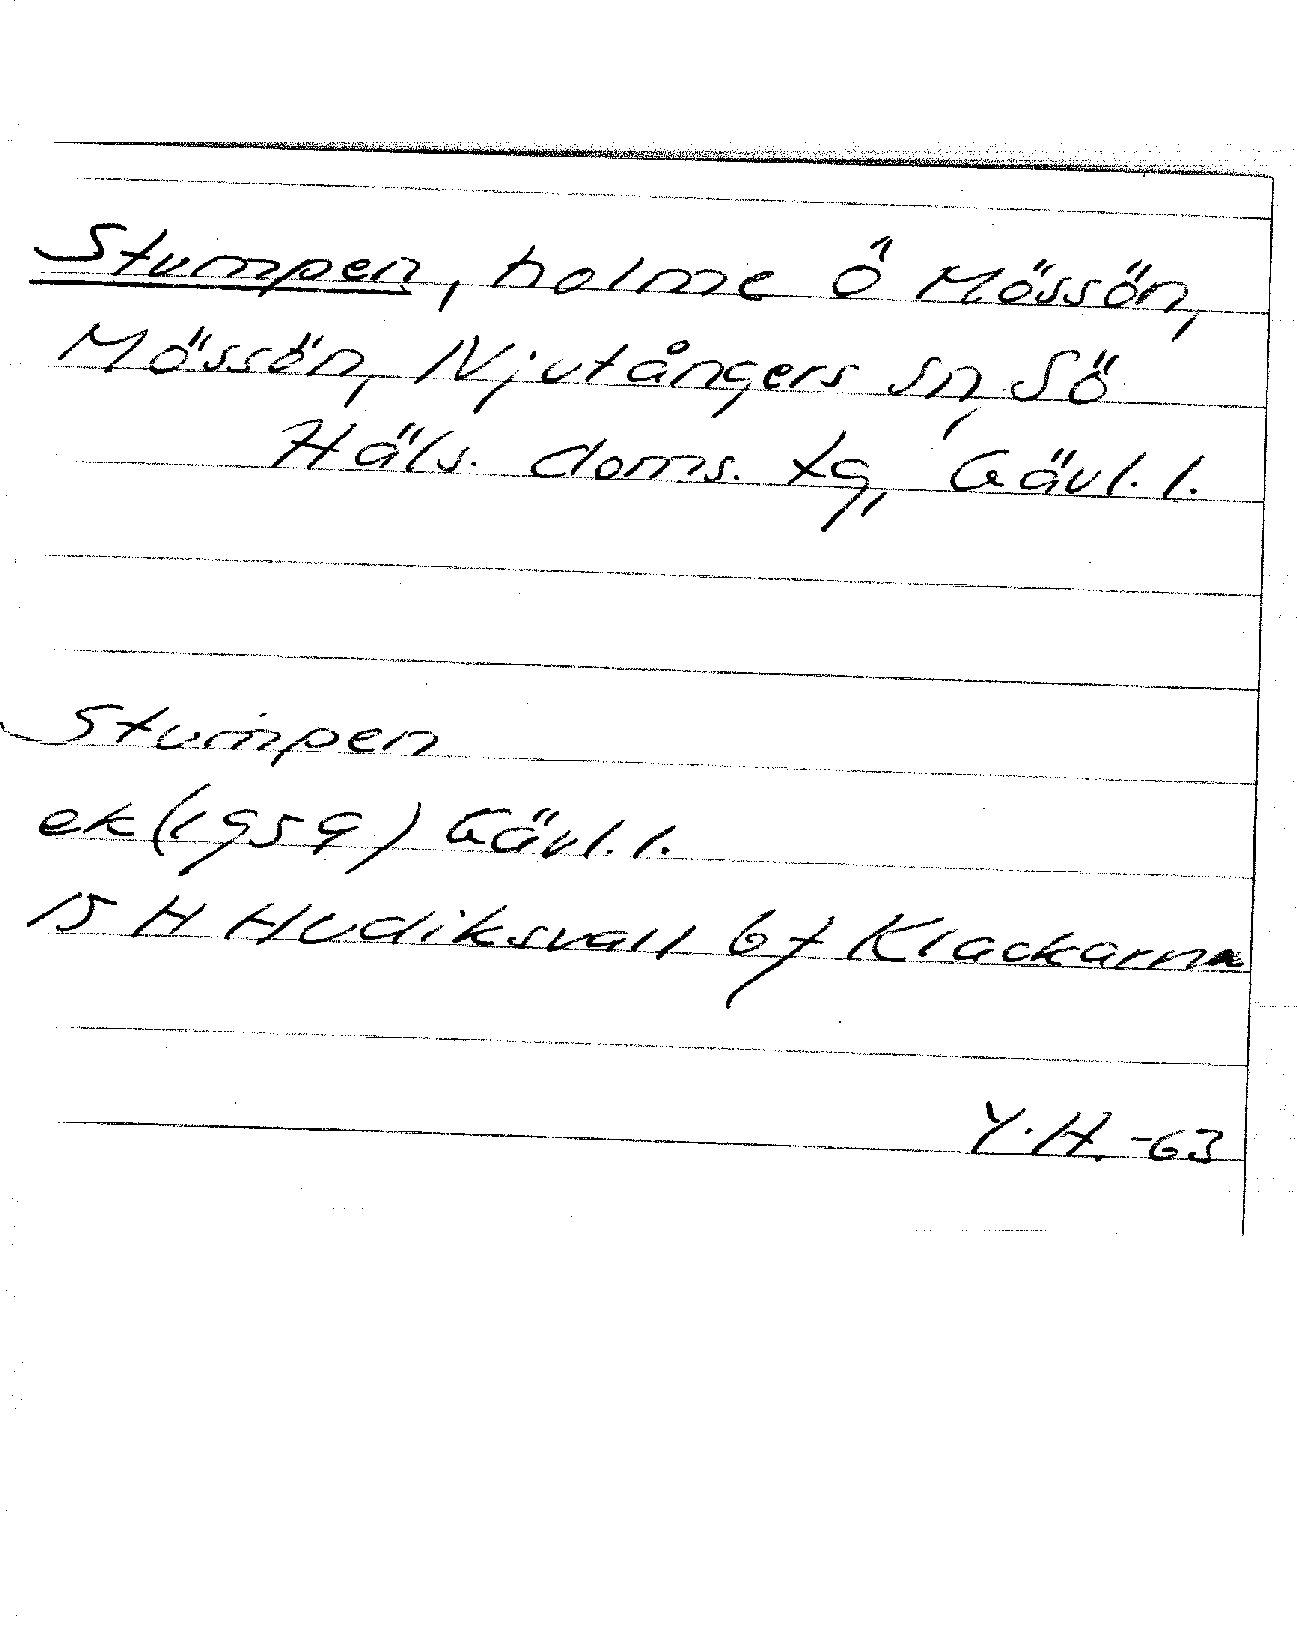 Stumpen, holme Ö Mössön,
Mössön, Njutångers sn, Sö
Häls. doms. tg, Gävl. l.
Stumpen
ek (1959) Gävl. l.
15 H Hudiksvall 6f Klackarna
Y. H. -63